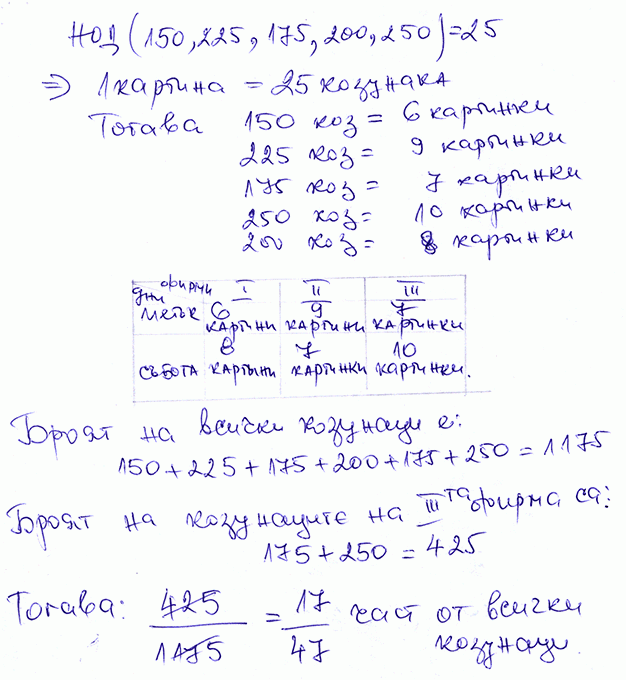 НОД (150, 225, 175, 200, 250) = 25
⇒ 1 картина = 25 козунака
Тогава 150 коз = 6 картинки
225 коз = 9 картинки
175 коз = 7 картинки
250 коз = 10 картинки
200 коз = 8 картинки
дни фирми I II III
петък 6 картини 9 картини 7 картинки
събота 8 картини 7 картинки 10 картинки.
Броят на всички козунаци е:
150 + 225 + 175 + 200 + 175 + 250 = 1175
Броят на козунаците на III та фирма са:
175 + 250 = 425
Тогава: 425/1175 = 17/47 част от всички
козунаци.